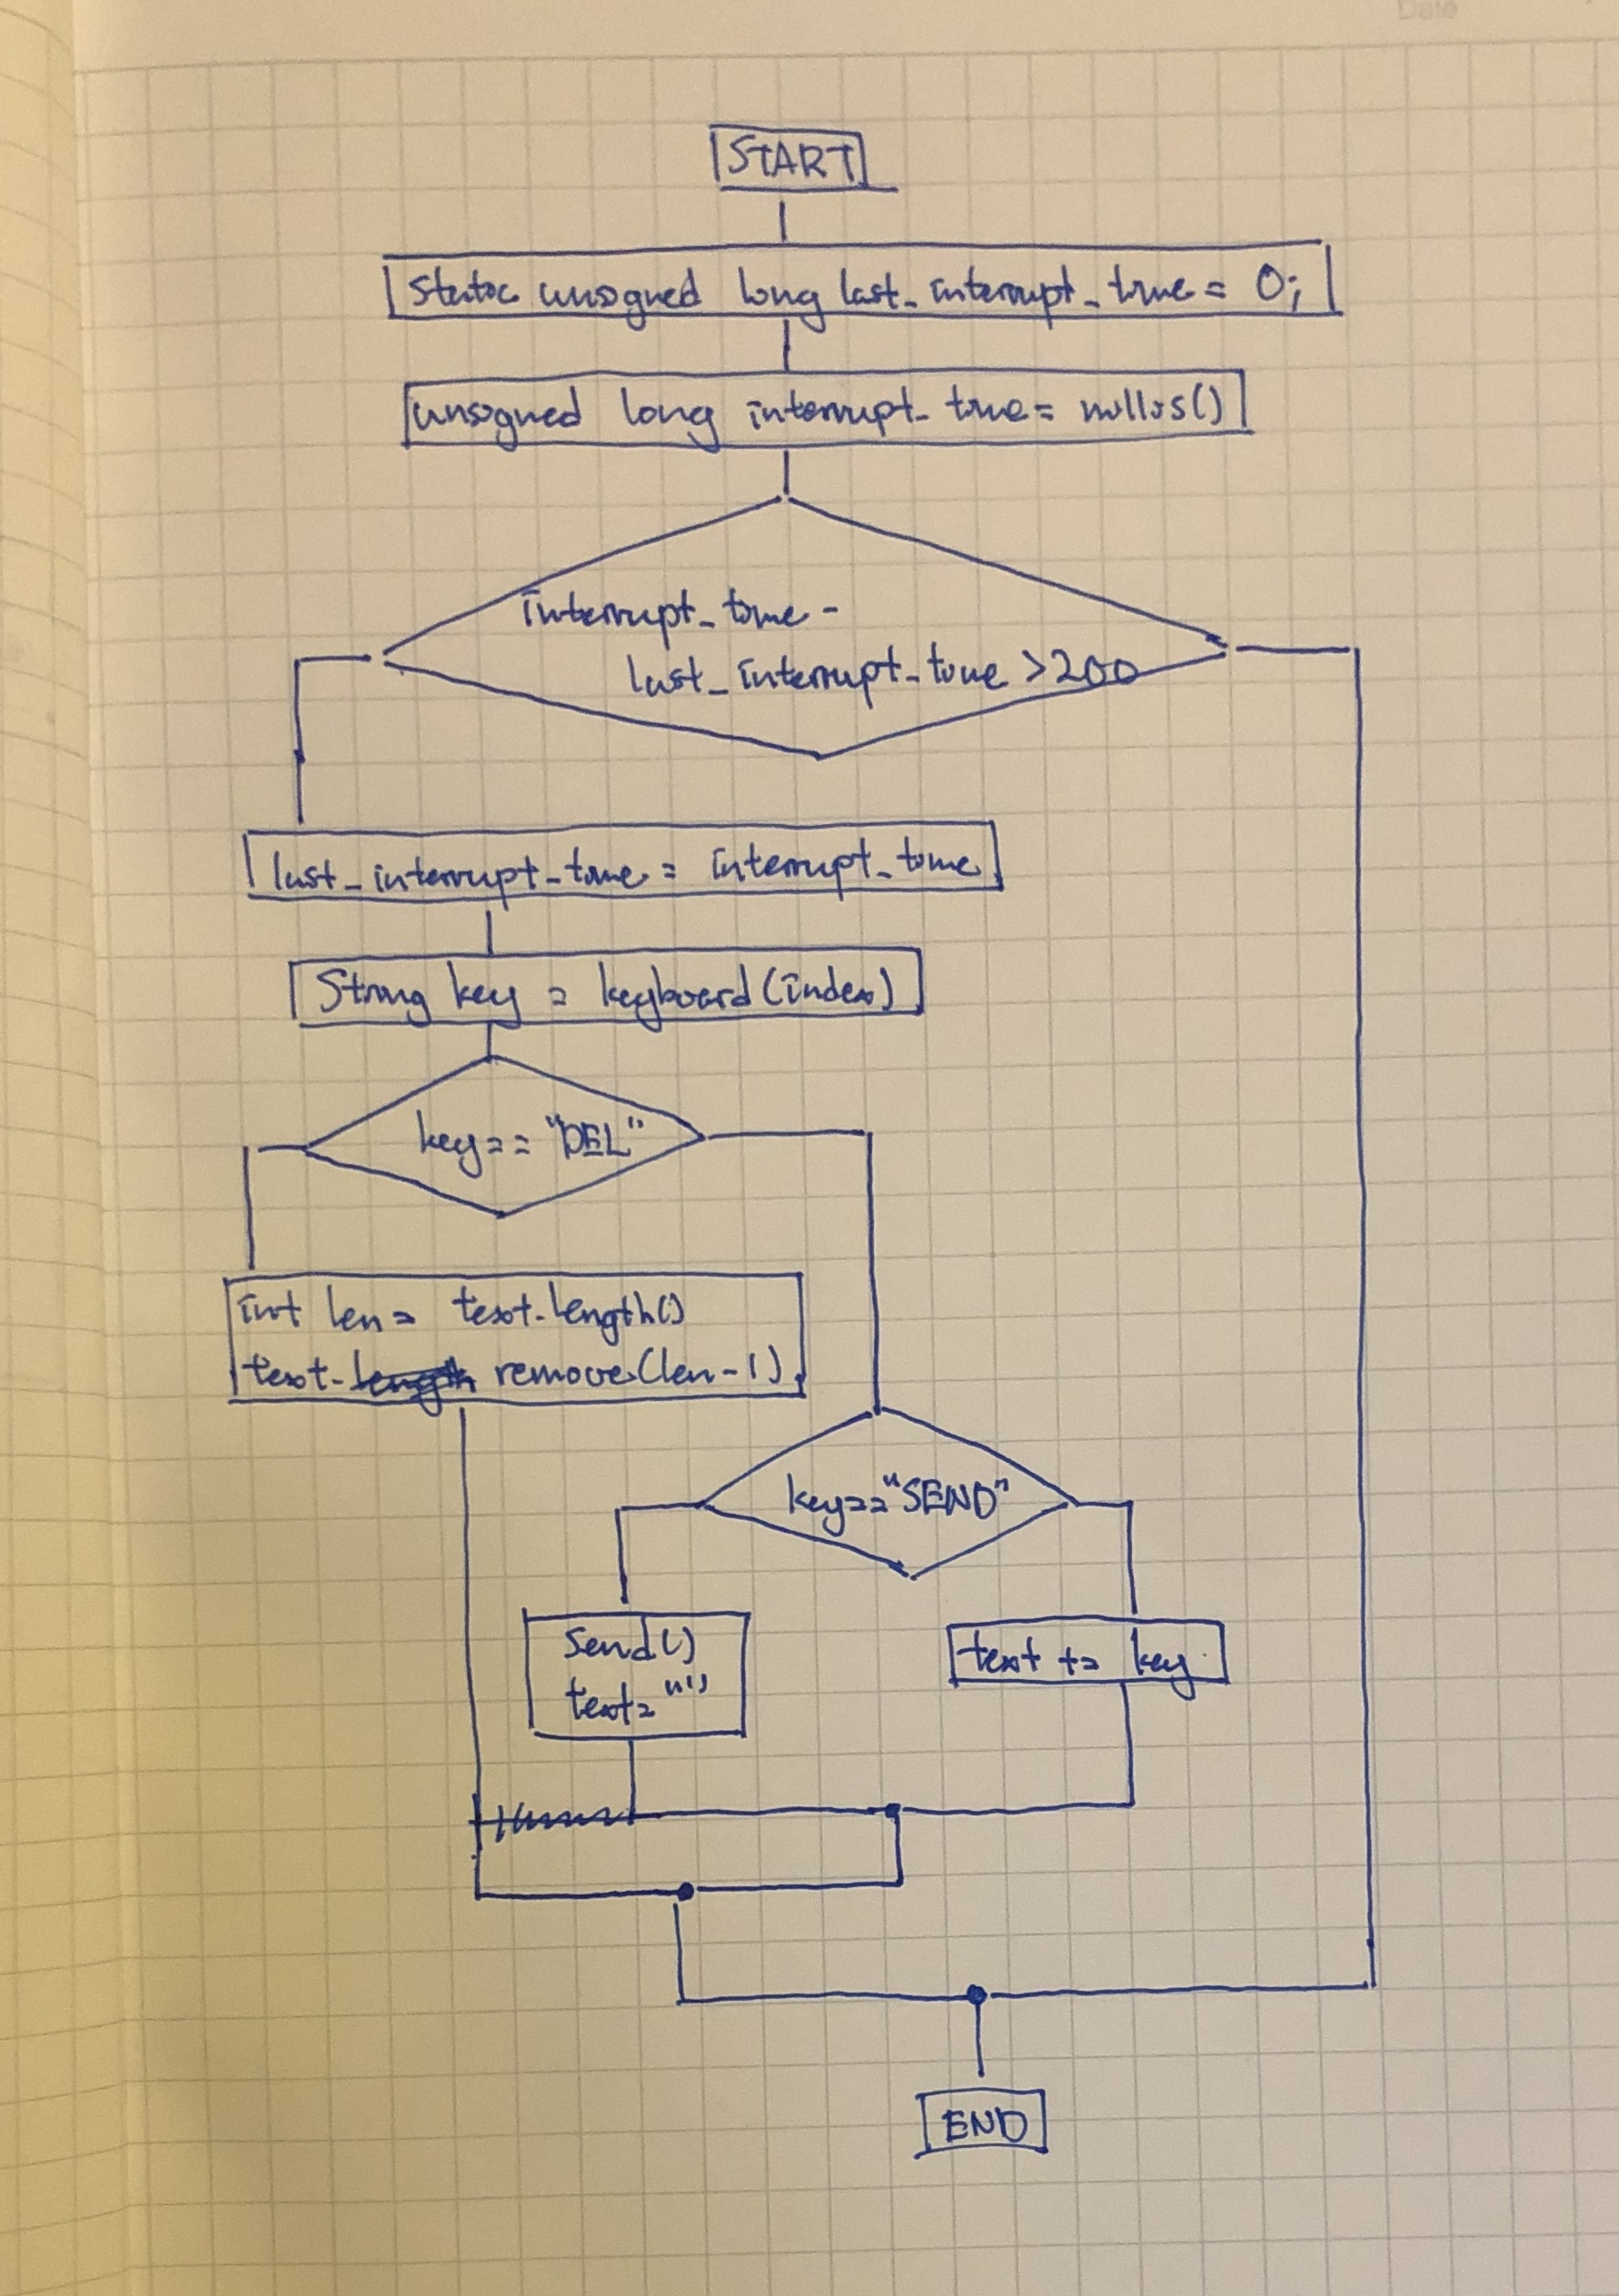 Date
START
static unsigned long last_interrupt_time = 0;
unsigned long interrupt_time = millis()
interrupt_time -
last_interrupt_time > 200
last_interrupt_time = interrupt_time
String key = keyboard(index)
key == "DEL"
int len = text.length()
text.length remove(len-1)
key == "SEND"
send()
text = ""
text += key
END